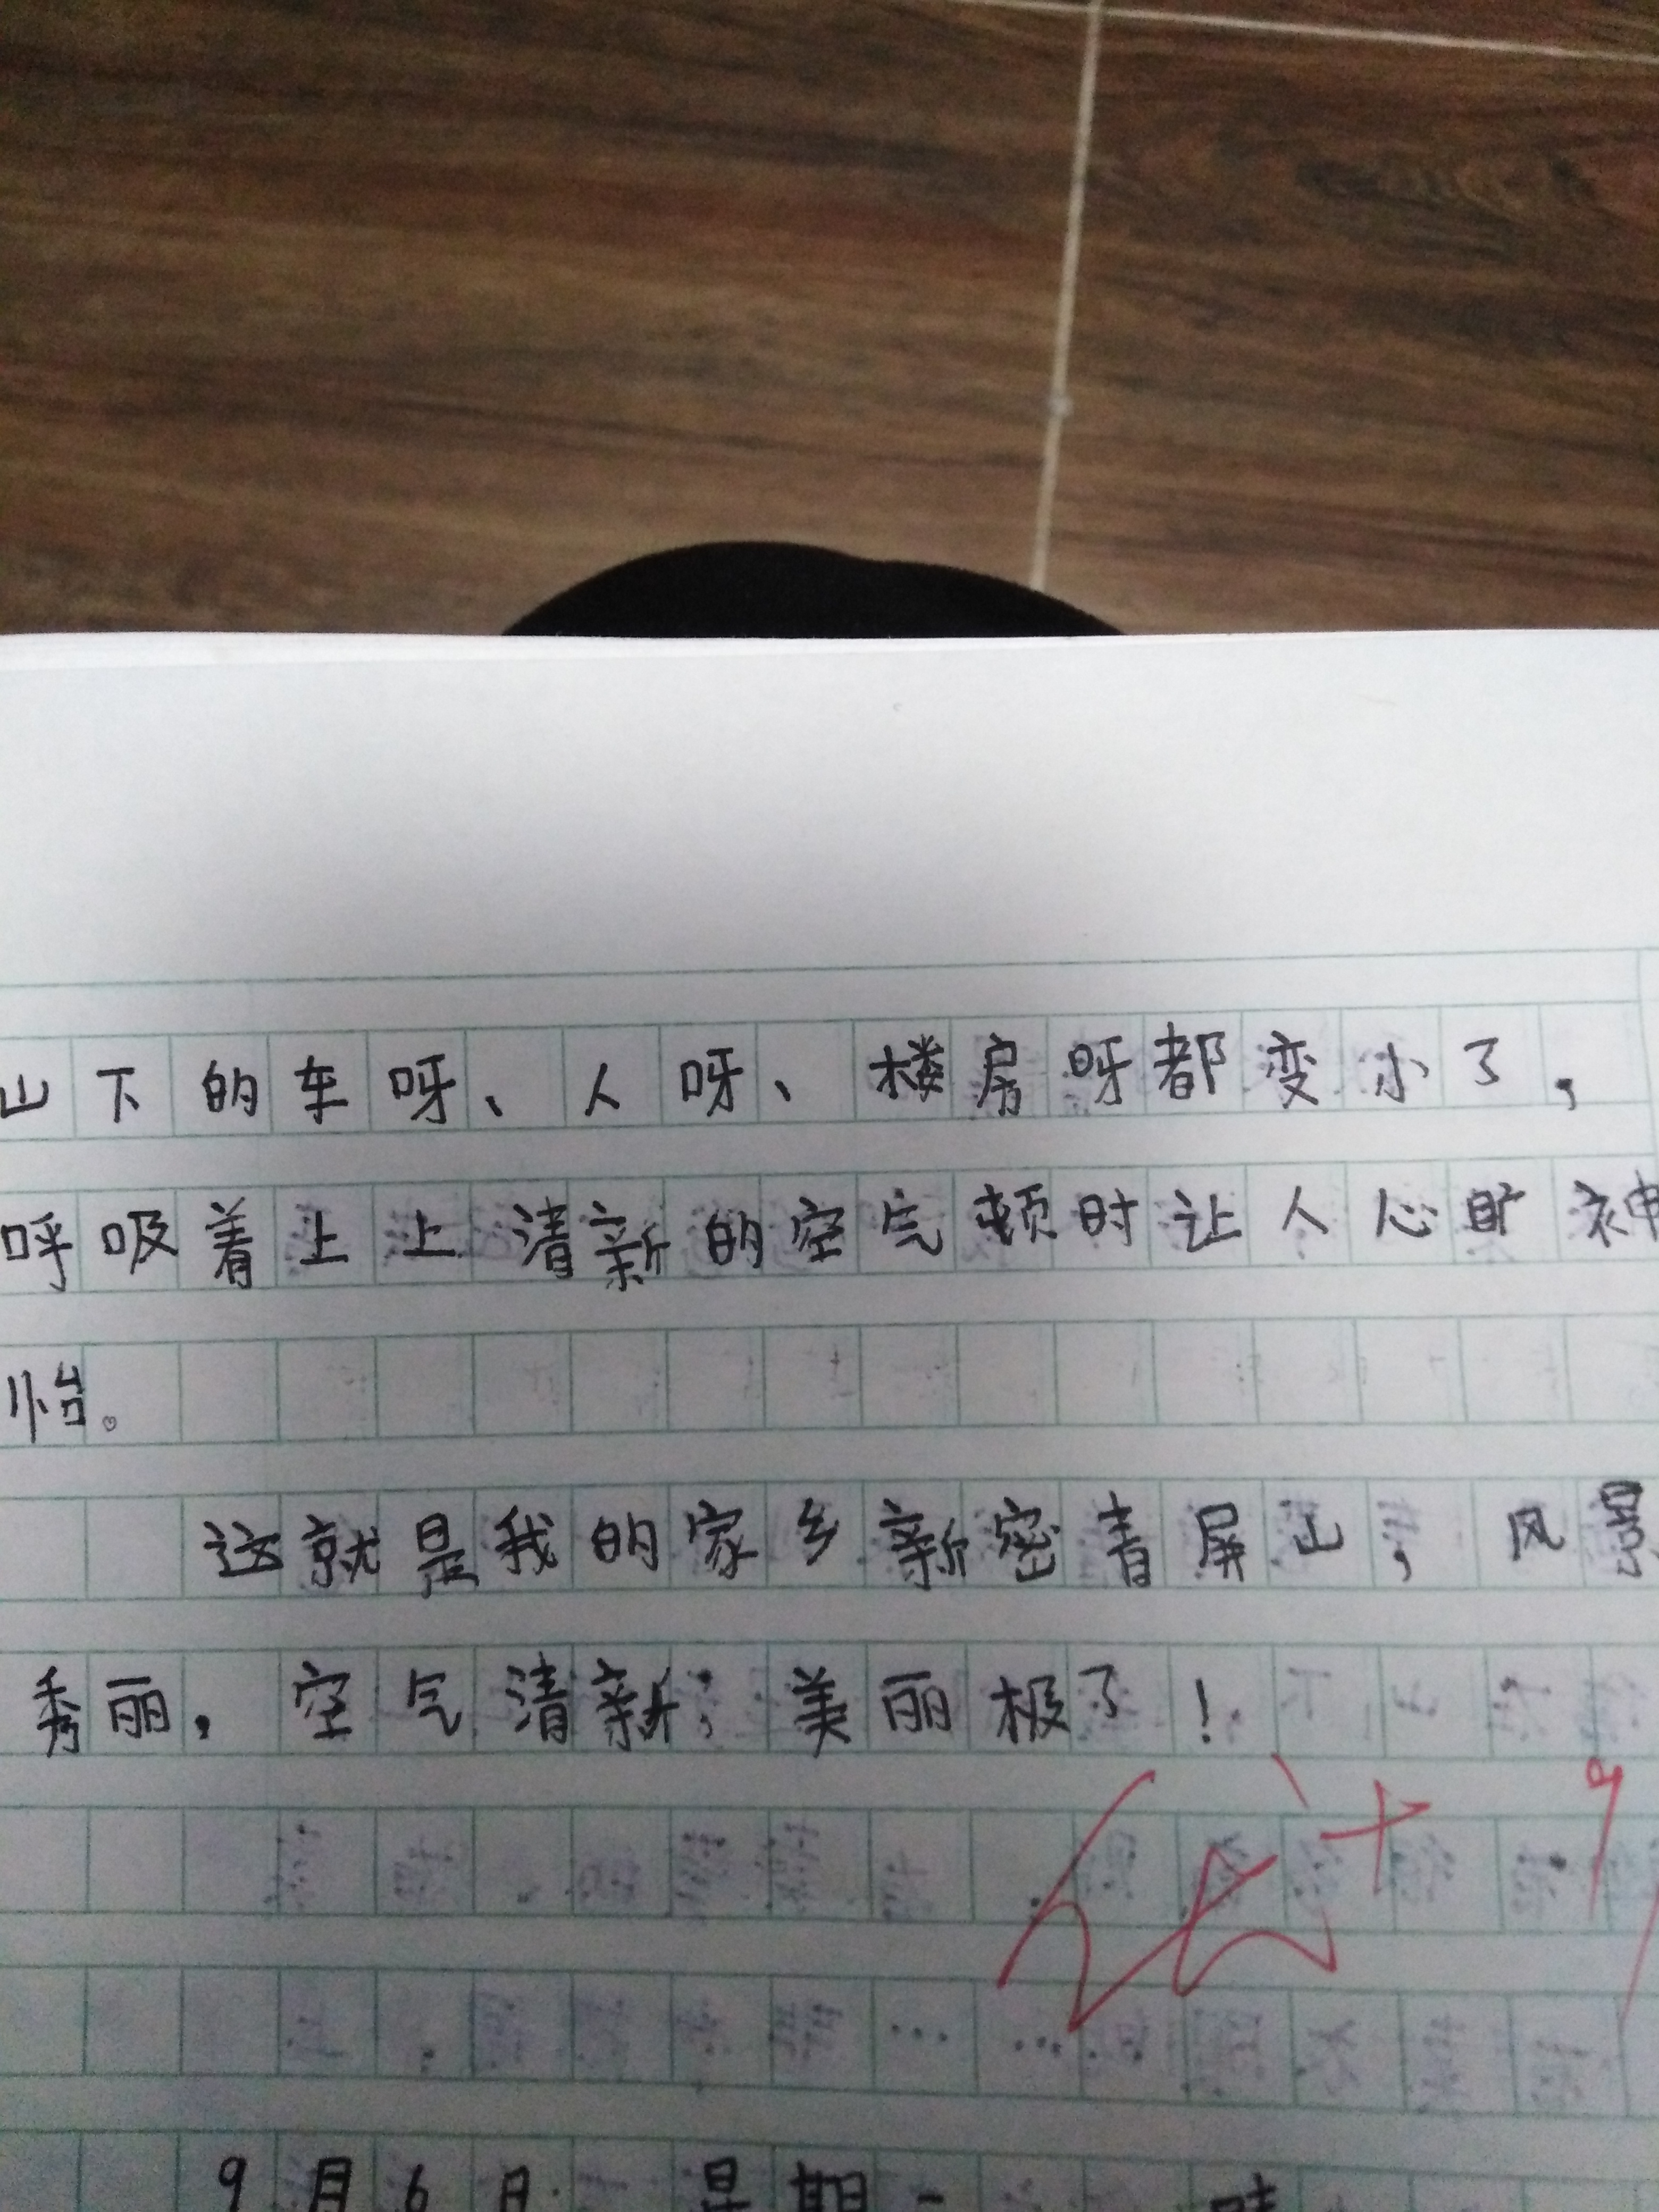 山下的车呀、人呀、楼房呀都变小了，
呼吸着上上清新的空气顿时让人心旷神
怡。
这就是我的家乡新密青屏山，风景
秀丽，空气清新，美丽极了！
优+ 9
9月6日 星期一 晴